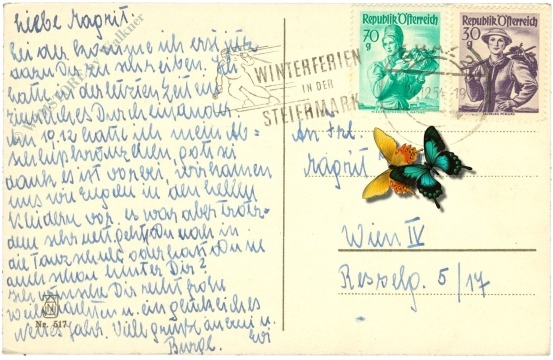 Liebe Magrit.
bei der komme ich erst
dazu Dir zu schreiben. Ich
hatte in der letzten Zeit ein
ziemliches Durcheinander.
am 19.12 hatte ich mein Ab-
gott sei
dank es ist vorbei, wir kamen
uns wie Engeln in den hellen
Kleidern vor, es war aber trotz-
dem sehr nett gehst Du noch in
die Tanzschule oder hast Du sie
auch schon hinter Dir?
Hier wünsche Dir recht frohe
Weihnachten u. ein glückliches
Neues Jahr. Viele Grüße an Euch u.
Burgl.
Nr. 517
WINTERFERIEN
IN DER
STEIERMARK
Republik Österreich
70
g
Republik Österreich
30
g
12.54
An Frl.
Magrit
Wien IV
Resselg. 5/17